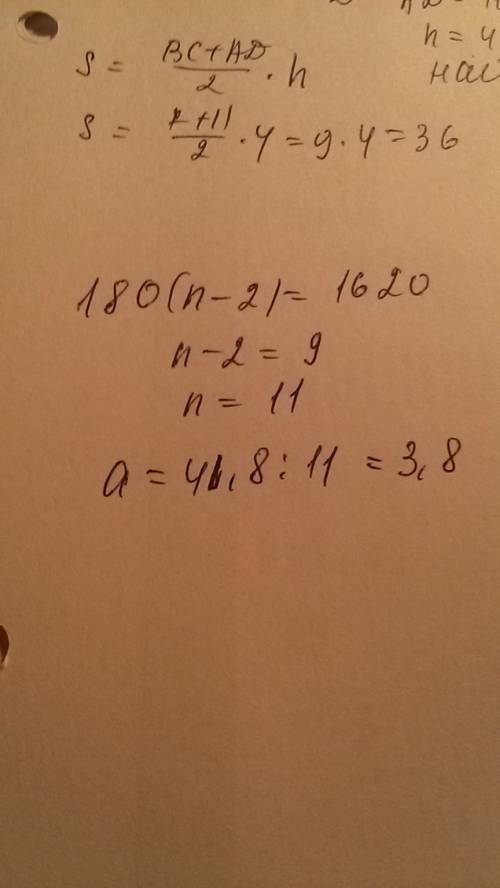 h = 4
S = (BC+AD)/2 · h
S = (7+11)/2 · 4 = 9 · 4 = 36
180(n-2) = 1620
n-2 = 9
n = 11
a = 41,8 : 11 = 3,8